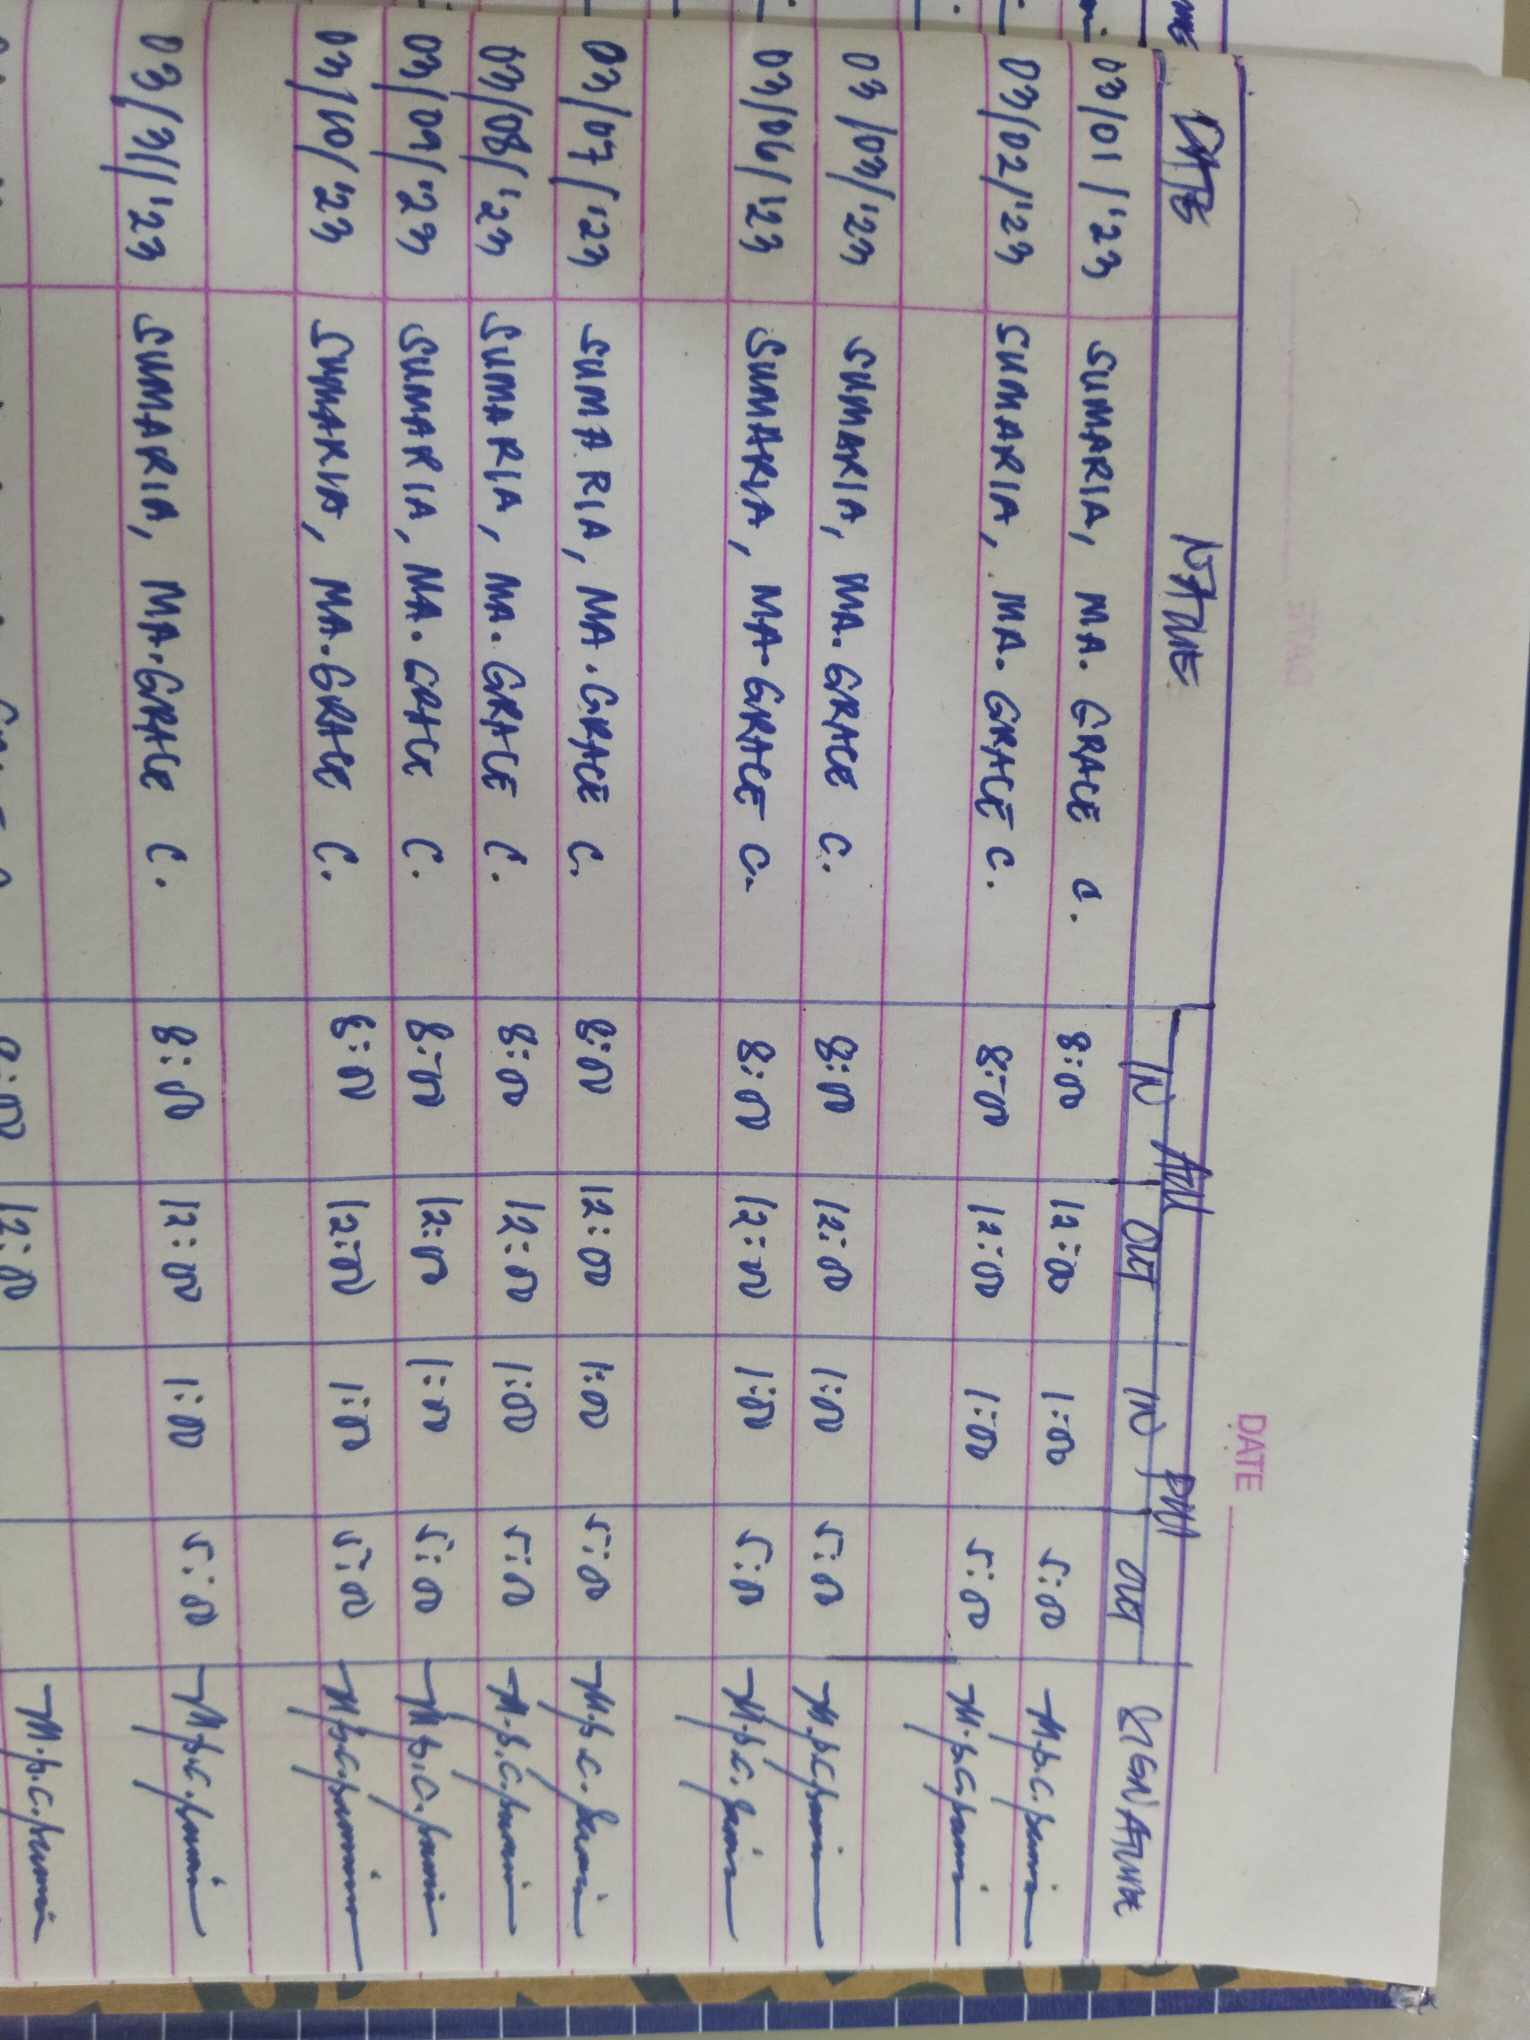 DATE
DATE NAME AM PM
IN OUT IN OUT SIGNATURE
03/01/'23 SUMARIA, MA. GRACE C. 8:00 12:00 1:00 5:00
03/02/'23 SUMARIA, MA. GRACE C. 8:00 12:00 1:00 5:00
03/03/'23 SUMARIA, MA. GRACE C. 8:00 12:00 1:00 5:00
03/06/'23 SUMARIA, MA. GRACE C. 8:00 12:00 1:00 5:00
03/07/'23 SUMARIA, MA. GRACE C. 8:00 12:00 1:00 5:00
03/08/'23 SUMARIA, MA. GRACE C. 8:00 12:00 1:00 5:00
03/09/'23 SUMARIA, MA. GRACE C. 8:00 12:00 1:00 5:00
03/10/'23 SUMARIA, MA. GRACE C. 8:00 12:00 1:00 5:00
SUMARIA, MA. GRACE C. 8:00 12:00 1:00 5:00
12:00